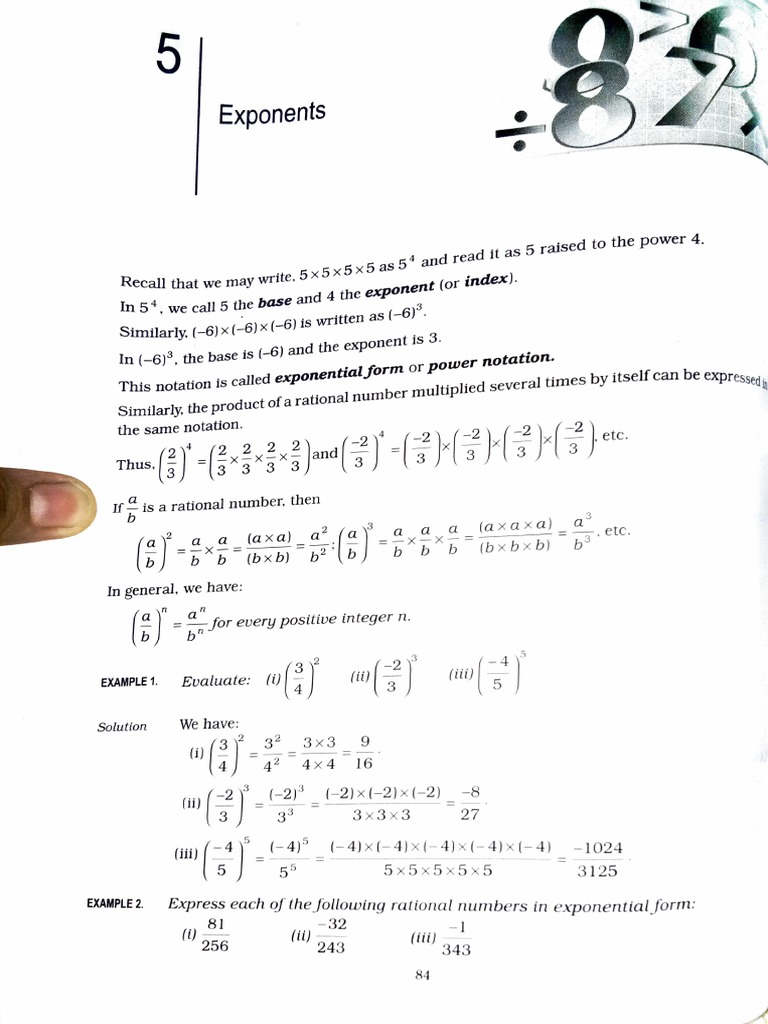 5
Exponents
Recall that we may write, 5×5×5×5 as 5⁴ and read it as 5 raised to the power 4.
In 5⁴, we call 5 the base and 4 the exponent (or index).
Similarly, (−6)×(−6)×(−6) is written as (−6)³.
In (−6)³, the base is (−6) and the exponent is 3.
This notation is called exponential form or power notation.
Similarly, the product of a rational number multiplied several times by itself can be expressed in
the same notation.
Thus, (2/3)⁴ = (2/3 × 2/3 × 2/3 × 2/3) and (−2/3)⁴ = (−2/3)×(−2/3)×(−2/3)×(−2/3), etc.
If a/b is a rational number, then
(a/b)² = a/b × a/b = (a×a)/(b×b) = a²/b²; (a/b)³ = a/b × a/b × a/b = (a×a×a)/(b×b×b) = a³/b³, etc.
In general, we have:
(a/b)ⁿ = aⁿ/bⁿ for every positive integer n.
EXAMPLE 1. Evaluate: (i) (3/4)² (ii) (−2/3)³ (iii) (−4/5)⁵
Solution We have:
(i) (3/4)² = 3²/4² = 3×3/4×4 = 9/16.
(ii) (−2/3)³ = (−2)³/3³ = (−2)×(−2)×(−2)/3×3×3 = −8/27.
(iii) (−4/5)⁵ = (−4)⁵/5⁵ = (−4)×(−4)×(−4)×(−4)×(−4)/5×5×5×5×5 = −1024/3125.
EXAMPLE 2. Express each of the following rational numbers in exponential form:
(i) 81/256 (ii) −32/243 (iii) −1/343
84